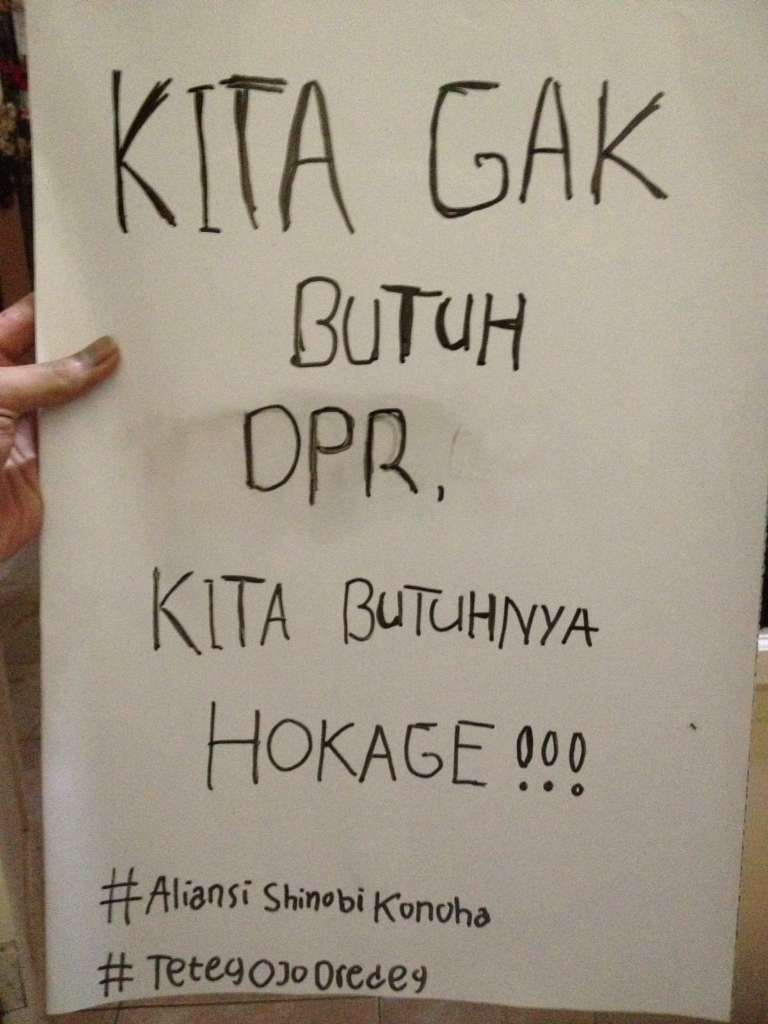 KITA GAK
BUTUH
DPR,
KITA BUTUHNYA
HOKAGE !!!
#Aliansi Shinobi Konoha
#TetegOjoDredeg